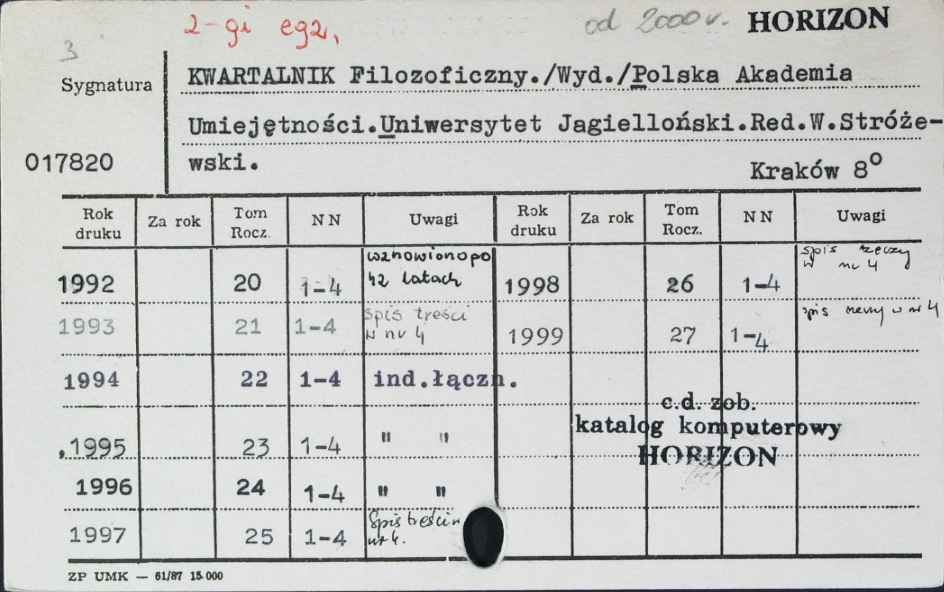 3 2-gi egz, od 2000 r. HORIZON
Sygnatura KWARTALNIK Filozoficzny./Wyd./Polska Akademia
Umiejętności.Uniwersytet Jagielloński.Red.W.Stróże-
017820 wski. Kraków 8°
Rok druku Za rok Tom Rocz. N N Uwagi Rok druku Za rok Tom Rocz. N N Uwagi
1992 20 1-4 wznowiono po 42 latach 1998 26 1-4 spis rzeczy w nr 4
1993 21 1-4 spis treści w nr 4 1999 27 1-4 spis rzeczy w nr 4
1994 22 1-4 ind.łączn.
c.d. zob.
katalog komputerowy
.1995 23 1-4 " "
HORIZON
1996 24 1-4 " "
1997 25 1-4 Spis treści w nr 4.
ZP UMK — 61/87 15 000